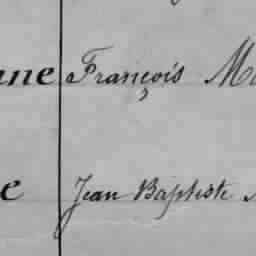 nne François M
e Jean Baptiste